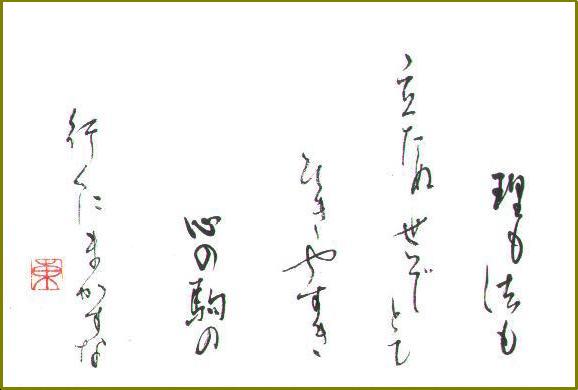 理も法も
立たぬ世ぞとて
ひきやすき
心の駒の
行くにまかすな
東